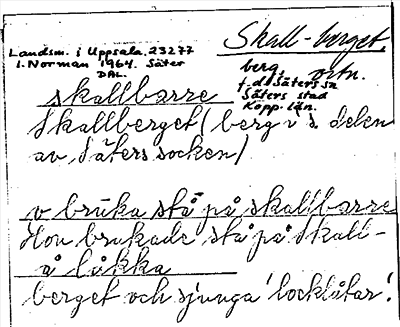 Skall-berget.
Landsm. i Uppsala. 23277
I. Norman 1964. Säter
DAL.
berg, ortn.
f.d. Säters sn
Säters stad
Kopp. län.
skallbärre
Skallberget (berg i s. delen
av Säters socken)
o bruka stå på skallbärre
Hon brukade stå på Skall-
å låkka
berget och sjunga 'locklåtar'.